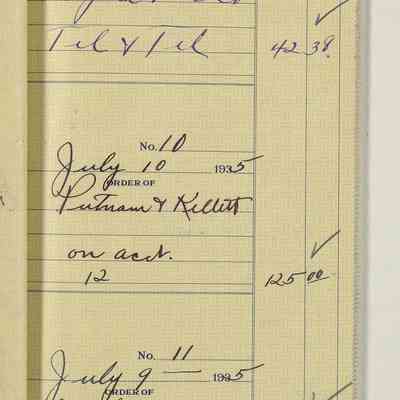 Tel & Tel 42 38
No. 10
July 10 1935
ORDER OF
Putnam & Kellett
on acct.
12 125 00
No. 11
July 9 — 1935
ORDER OF